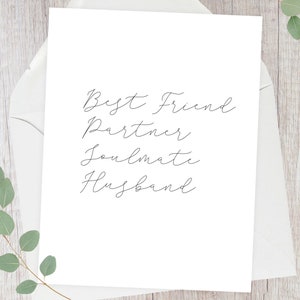 Best Friend
Partner
Soulmate
Husband